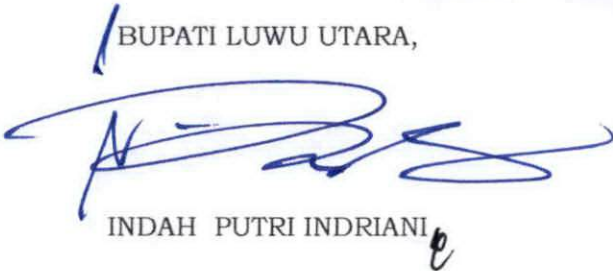 BUPATI LUWU UTARA,
INDAH PUTRI INDRIANI